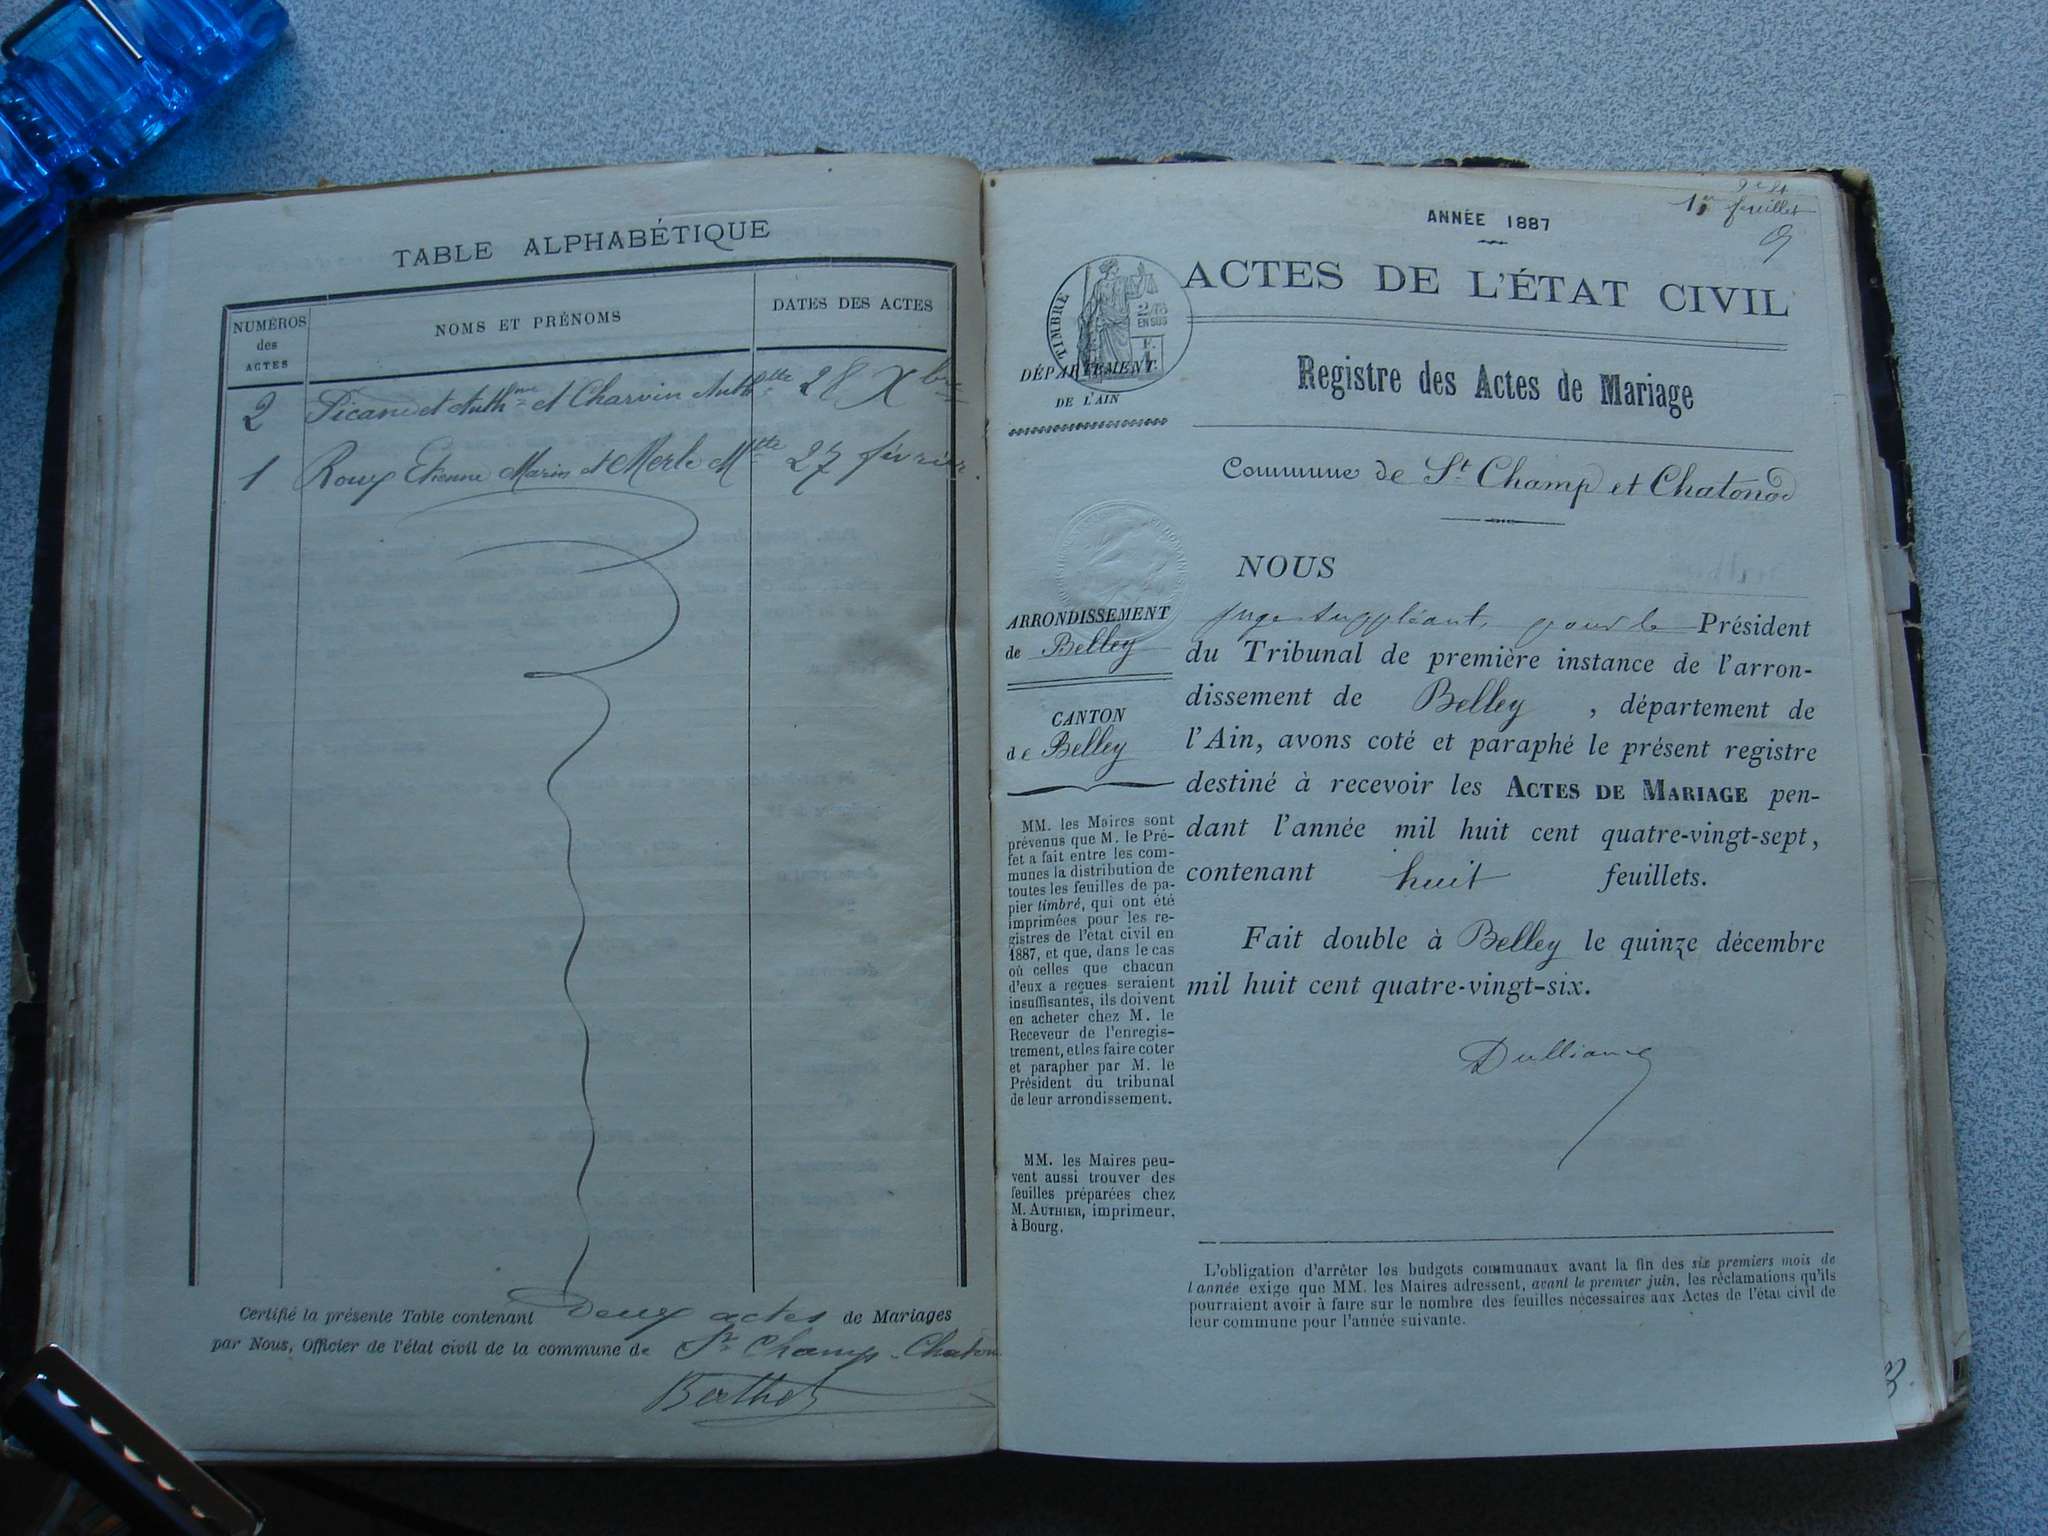 TABLE ALPHABÉTIQUE
NUMÉROS des ACTES
NOMS ET PRÉNOMS
DATES DES ACTES
2 Picanet Anth.me et Charvin Anth.tte 28 Xbre
1 Roux Etienne Marin et Merle M.tte 27 février
Certifié la présente Table contenant Deux actes de Mariages
par Nous, Officier de l'état civil de la commune de St Champ-Chaton
Berthet
1er feuillet
ANNÉE 1887
ACTES DE L'ÉTAT CIVIL
TIMBRE
2/10
EN SUS
DÉPARTEMENT
DE L'AIN
Registre des Actes de Mariage
Commune de St Champ et Chatonod
NOUS
ARRONDISSEMENT
de Belley
CANTON
de Belley
juge suppléant, pour le Président
du Tribunal de première instance de l'arron-
dissement de Belley, département de
l'Ain, avons coté et paraphé le présent registre
destiné à recevoir les ACTES DE MARIAGE pen-
dant l'année mil huit cent quatre-vingt-sept,
contenant huit feuillets.
Fait double à Belley le quinze décembre
mil huit cent quatre-vingt-six.
MM. les Maires sont
prévenus que M. le Pré-
fet a fait entre les com-
munes la distribution de
toutes les feuilles de pa-
pier timbré, qui ont été
imprimées pour les re-
gistres de l'état civil en
1887, et que, dans le cas
où celles que chacun
d'eux a reçues seraient
insuffisantes, ils doivent
en acheter chez M. le
Receveur de l'enregis-
trement, et les faire coter
et parapher par M. le
Président du tribunal
de leur arrondissement.
MM. les Maires peu-
vent aussi trouver des
feuilles préparées chez
M. AUTHIER, imprimeur,
à Bourg.
L'obligation d'arrêter les budgets communaux avant la fin des six premiers mois de
l'année exige que MM. les Maires adressent, avant le premier juin, les réclamations qu'ils
pourraient avoir à faire sur le nombre des feuilles nécessaires aux Actes de l'état civil de
leur commune pour l'année suivante.